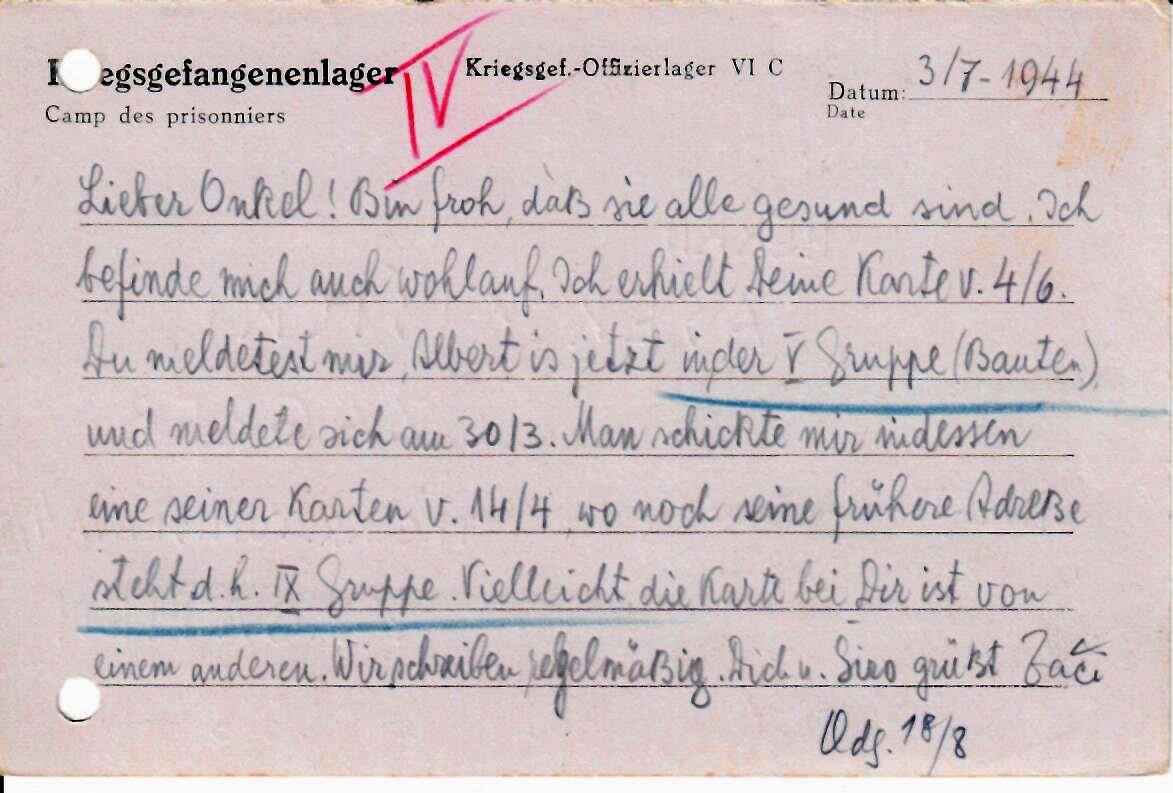 Kriegsgefangenenlager IV Kriegsgef.-Offizierlager VI C
Camp des prisonniers
Datum: 3/7-1944
Date
Lieber Onkel! Bin froh, daß sie alle gesund sind. Ich
befinde mich auch wohlauf. Ich erhielt Deine Karte v. 4/6.
Du meldetest mir, Albert is jetzt in der V Gruppe (Bauten)
und meldete sich am 30/3. Man schickte mir indessen
eine seiner Karten v. 14/4 wo noch seine frühere Adreße
steht d. h. IX Gruppe. Vielleicht die Karte bei Dir ist von
einem anderen. Wir schreiben regelmäßig. Dich u. Siro grüßt
Odg. 18/8